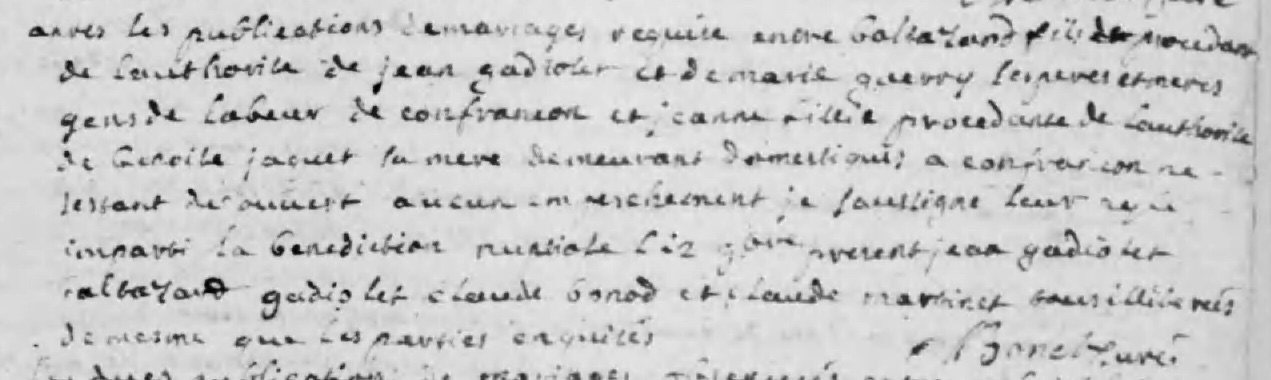 apres les publications de mariages requise entre baltazard fils procedant
de lauthorite de jean gadiolet et de marie guerry ses peres et meres
gens de labeur de confrancon et jeanne fillie procedante de lauthorite
de benoite jaquet sa mere demeurant domestiques a confrancon ne
sestant decouvert aucun empeschement je soussigne leur ay
imparti la benediction nuptiale le 12 9bre present jean gadiolet
baltazard gadiolet claude bonod et claude martinet tous illiterés
de mesme que les parties enquises
Bonet curé
publication de mariages